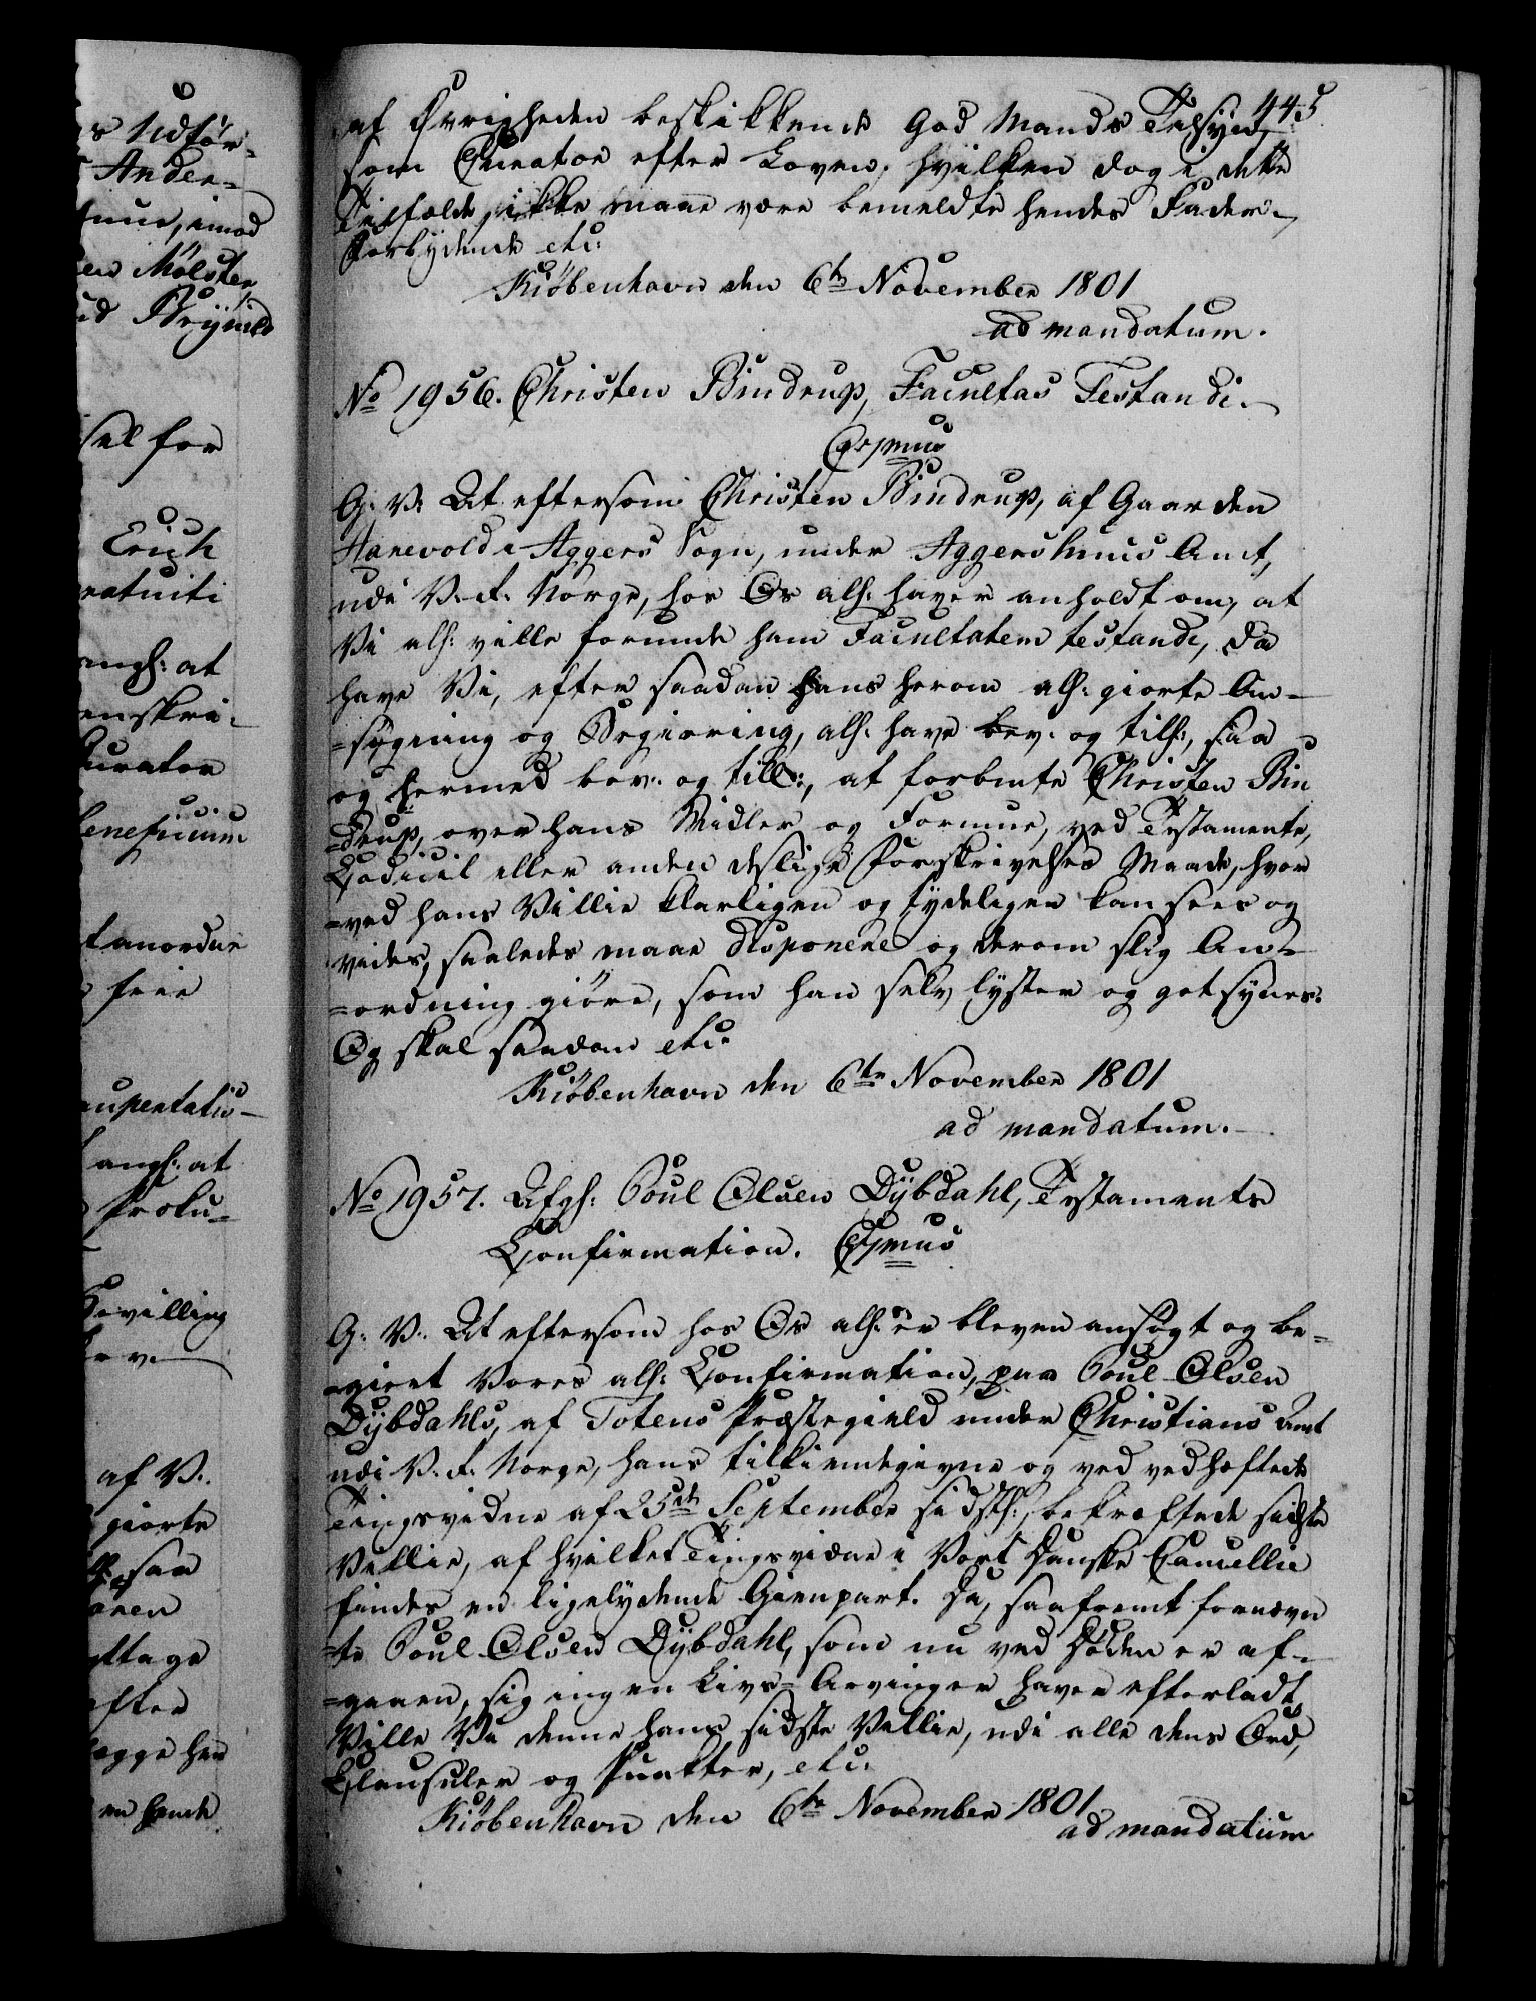 445
af Øvrigheden beskikkende God Mands Tilsyn,
som Curator efter Loven, hvilken dog i dette
Tilfælde ikke maae være bemeldte hendes Fader.
Forbydende etc:
Kiöbenhavn den 6te November 1801
ad mandatum.
No 1956. Christen Bindrup, Facultas Testandi.
Grmus
G: V: At eftersom Christen Bindrup, af Gaarden
Hanevold i Aggers Sogn, under Aggershuus Amt,
udi V. R. Norge, hos Os alh: haver anholdt om, at
Vi alh: ville forunde ham Facultatem testandi, da
have Vi, efter saadan hans herom alh: giorte An-
=søgning og Begiæring, alh: have bev: og tilh:, saa
og hermed bev: og till:, at forbmte Christen Bin
=drup, over hans Midler og Formue, ved Testamente,
Codicil eller anden deslige Forskrivelses Maade, hvor
=ved hans Villie klarligen og tydeligen kan sees og
vides, saaledes maae disponere og derom slig An-
=ordning giöre, som han selv lyster og got synes.
Og skal saadan etc.
Kiöbenhavn den 6te November 1801
ad mandatum.
No 1957. Afgh: Poul Olsen Dÿbdahl, Testaments
Confirmation. Grmus
G: V: At eftersom hos Os alh: er bleven ansøgt og be-
=gieret Vores alh: Confirmation, paa Poul Olsen
Dÿbdahls, af Totens Præstegield under Christians Amt
udi V. R. Norge, hans tilkiendegivne og ved vedhæftede
Tingsvidne af 25de September sidsth:, bekræftede sidste
Villie, af hvilket Tingsvidne i Vort Danske Cancellie
findes en ligelydende Gienpart. Da, saafremt fornævn
=te Poul Olsen Dÿbdahl, som nu ved Döden er af-
=gaaen, sig ingen Livs=Arvinger haver efterladt,
Ville Vi denne hans sidste Villie, udi alle dens Ord,
Clausuler og Puncter, etc:
Kiöbenhavn den 6te November 1801
ad mandatum